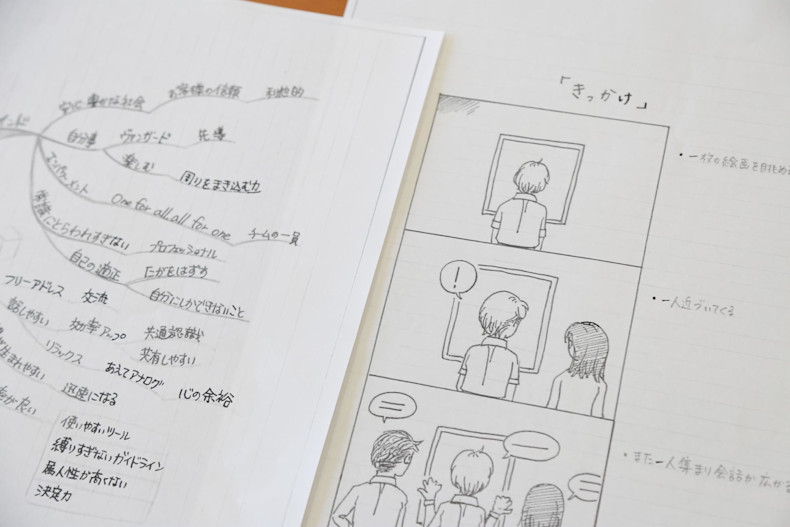 安心 豊かな社会 お客様の信頼 利他的
インド
自分事 ヴァンガード 先導
楽しむ 周りをまき込む力
エンゲージメント One for all, all for one チームの一員
常識にとらわれすぎない プロフェッショナル
自己の適正 たがをはずす
自分にしかできないこと
フリーアドレス 交流
話しやすい 効率アップ 共通認識
共有しやすい
生まれやすい リラックス あえてアナログ 心の余裕
迅速になる
使いやすいツール
縛りすぎないガイドライン
属人性が高くない
決定力
「きっかけ」
・一枚の絵画を眺め
!
・一人近づいてくる
・また一人集まり会話が広がる